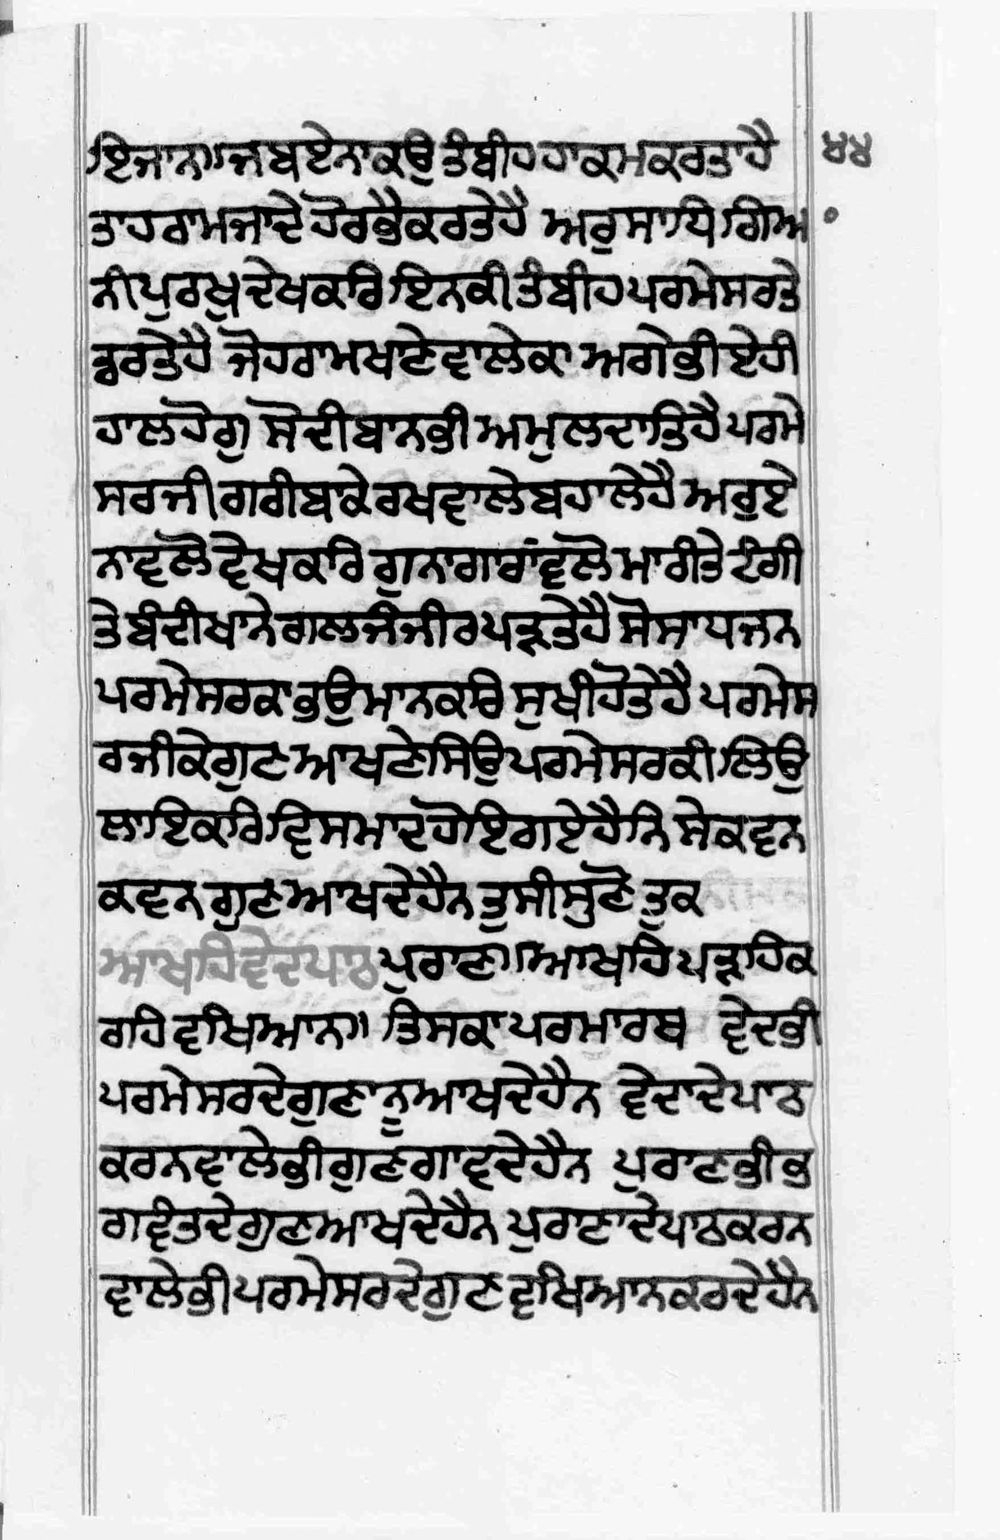 ਇਜਾਨਾ ਜਬ ਏਨਾ ਕਉ ਤੰਬੀਹ ਹਾਕਮ ਕਰਤਾ ਹੈ ੪੪
ਤਾ ਹਰਾਮਜਾਦੇ ਹੋਰ ਭੈ ਕਰਤੇ ਹੈ ਅਰੁ ਸਾਧਿ ਗਿਆ
ਨੀ ਪੁਰਖੁ ਦੇਖ ਕਰਿ ਇਨ ਕੀ ਤੰਬੀਹ ਪਰਮੇਸਰ ਤੇ
ਡਰਤੇ ਹੈ ਜੋ ਹਰਾਮ ਖਾਣੇ ਵਾਲੇ ਕਾ ਅਗੇ ਭੀ ਏਹੀ
ਹਾਲ ਹੋਗੁ ਸੋ ਦੀਬਾਨ ਭੀ ਅਮੁਲ ਦਾਤਿ ਹੈ ਪਰਮੇ
ਸਰ ਜੀ ਗਰੀਬ ਕੇ ਰਖਵਾਲੇ ਬਹਾਲੇ ਹੈ ਅਰੁ ਏ
ਨਾ ਵਲੋ ਵੇਖ ਕਰਿ ਗੁਨਾਗਾਰਾਂ ਵਲੋ ਮਾਰੀਤੇ ਟੰਗੀ
ਤੇ ਬੰਦੀਖਾਨੇ ਗਲ ਜੰਜੀਰ ਪੜਤੇ ਹੈ ਸੋ ਸਾਧ ਜਨ
ਪਰਮੇਸਰ ਕਾ ਭਉ ਮਾਨ ਕਰਿ ਸੁਖੀ ਹੋਤੇ ਹੈ ਪਰਮੇਸ
ਰ ਜੀ ਕੇ ਗੁਣ ਆਖਣੇ ਸਿਉ ਪਰਮੇਸਰ ਕੀ ਲਿਉ
ਲਾਇ ਕਰਿ ਵਿਸਮਾਦ ਹੋਇ ਗਏ ਹੈਨਿ ਸੇ ਕਵਨ
ਕਵਨ ਗੁਣ ਆਖਦੇ ਹੈਨ ਤੁਸੀ ਸੁਣੋ ਤੁਕ
ਆਖਹਿ ਵੇਦ ਪਾਠ ਪੁਰਾਣ॥ ਆਖਹਿ ਪੜਹਿ ਕ
ਰਹਿ ਵਖਿਆਨ॥ ਤਿਸ ਕਾ ਪਰਮਾਰਥ ਵੇਦ ਭੀ
ਪਰਮੇਸਰ ਦੇ ਗੁਣਾ ਨੂ ਆਖਦੇ ਹੈਨ ਵੇਦਾ ਦੇ ਪਾਠ
ਕਰਨ ਵਾਲੇ ਭੀ ਗੁਣ ਗਾਵਦੇ ਹੈਨ ਪੁਰਾਣ ਭੀ ਭ
ਗਵੰਤ ਦੇ ਗੁਣ ਆਖਦੇ ਹੈਨ ਪੁਰਾਣਾ ਦੇ ਪਾਠ ਕਰਨ
ਵਾਲੇ ਭੀ ਪਰਮੇਸਰ ਦੇ ਗੁਣ ਵਖਿਆਨ ਕਰਦੇ ਹੈਨ